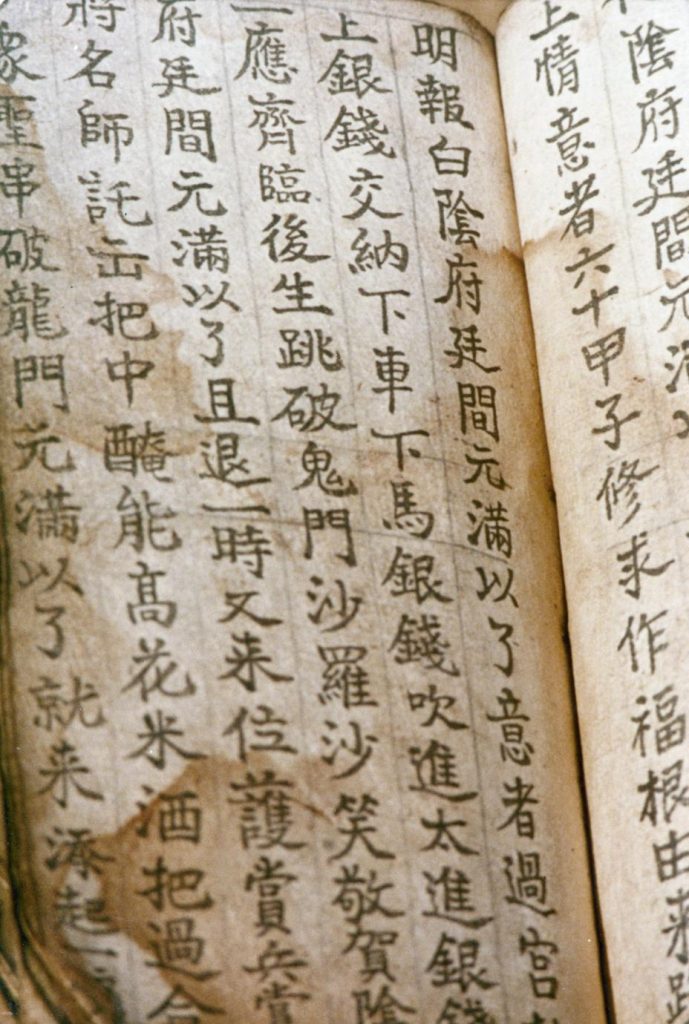 陰府廷間元滿
上情意者六十甲子修求作福根由来
明報白陰府廷間元滿以了意者過宮
上銀錢交納下車下馬銀錢吹進太進銀錢
一應齊臨後生跳破鬼門沙羅沙笑敬賀陰
府廷間元滿以了且退一時又来位護賞兵賞
將名師託把中醃能高花米酒把過合
聖串破龍門元滿以了就来添起一